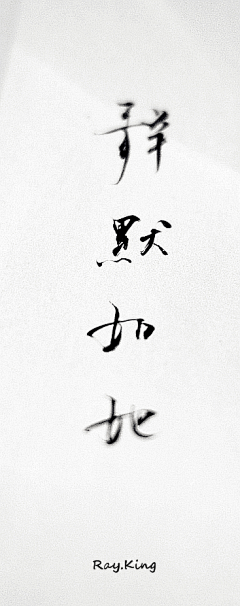 默
如
她
Ray.King